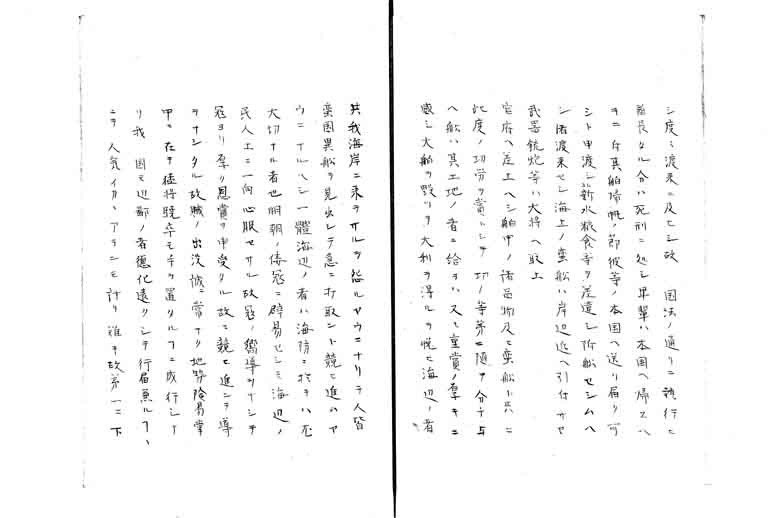 シ度々渡来ニ及ヒシ故 国法ノ通リニ執行ヒ
酋長タル分ハ死刑ニ処シ卑輩ハ本国ヘ帰スヘ
ヲニ付其舶帰帆ノ節彼等ノ本国ヘ送リ届ク可
シト申渡シ薪水粮食等ヲ差遣シ所船セシムヘ
シ諸渡来セシ海上ノ蛮船ハ岸辺近ヘ引付サセ
武器銃炮等ハ大将ヘ取上
官府ヘ差上ヘシ舶中ノ諸品物及ヒ蛮船ト共ニ
此度ノ功労ヲ賞シ其功ノ等第ニ随テ分チ与
ヘ船ハ其土地ノ者ニ給ヨハハ又々重賞ノ厚キニ
感シ大船ヲ毀ツヲ大利ヲ得ルヲ悦ヒ海辺ノ者
共我海岸ニ来ラサルヲ怨ルヤウニナリテ人皆
蛮国異船ヲ見出シテ急ニ打取ント競ヒ進ムヤ
ウニナルヘシ一體海辺ノ者ハ海防ニ於テハ至
大切ナル者也明朝ノ倭冦ニ辟易セシモ海辺ノ
民人上ニ一向心服セサル故冦ノ嚮導ヲナシテ
冦ヨリ厚ク恩賞ヲ申受タル故ニ競ヒ進ンテ導
ヲナシタル故賊ノ出没誠ニ常ナク地勢険易掌
中ニ在テ猛将驍卒モ手ヲ置タルヿニ成行シナ
リ我 国モ辺鄙ノ者徳化遠クシテ行届兼ルヿ、
ニテ人気イカヽアランモ計リ難キ故第一ニ下